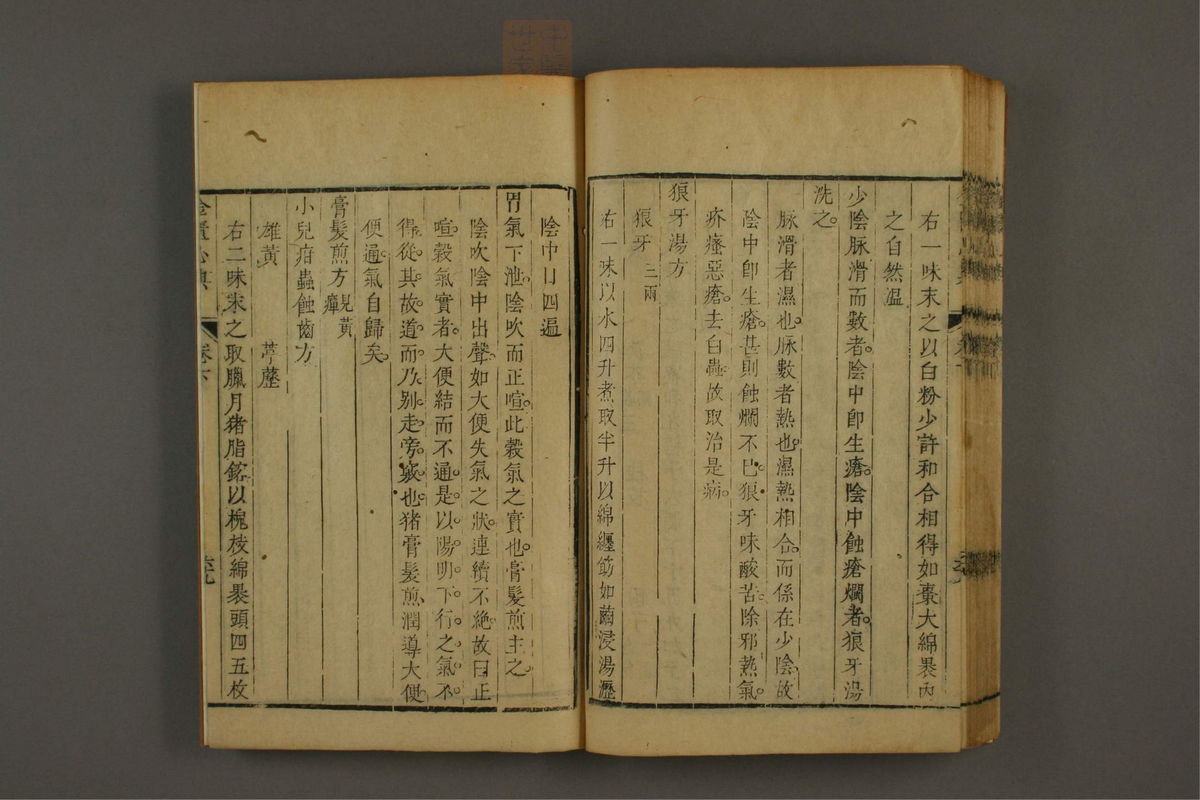 右一味末之以白粉少許和合相得如棗大綿裹內
之自然溫
少陰脉滑而數者陰中卽生瘡陰中蝕瘡爛者狼牙湯
洗之
脉滑者濕也脉數者熱也濕熱相合而係在少陰故
陰中卽生瘡甚則蝕爛不已狼牙味酸苦除邪熱氣
疥瘙惡瘡去白蟲故取治是病
狼牙湯方
狼牙 三兩
右一味以水四升煮取半升以綿纏筯如繭浸湯瀝
陰中日四遍
胃氣下泄陰吹而正喧此穀氣之實也膏髮煎主之
陰吹陰中出聲如大便失氣之狀連續不絶故曰正
喧穀氣實者大便結而不通是以陽明下行之氣不
得從其故道而乃别走旁竅也猪膏髮煎潤導大便
便通氣自歸矣
膏髮煎方 見黃癉
小兒疳蟲蝕齒方
雄黃 葶藶
右二味末之取臘月猪脂鎔以槐枝綿裹頭四五枚
卷下